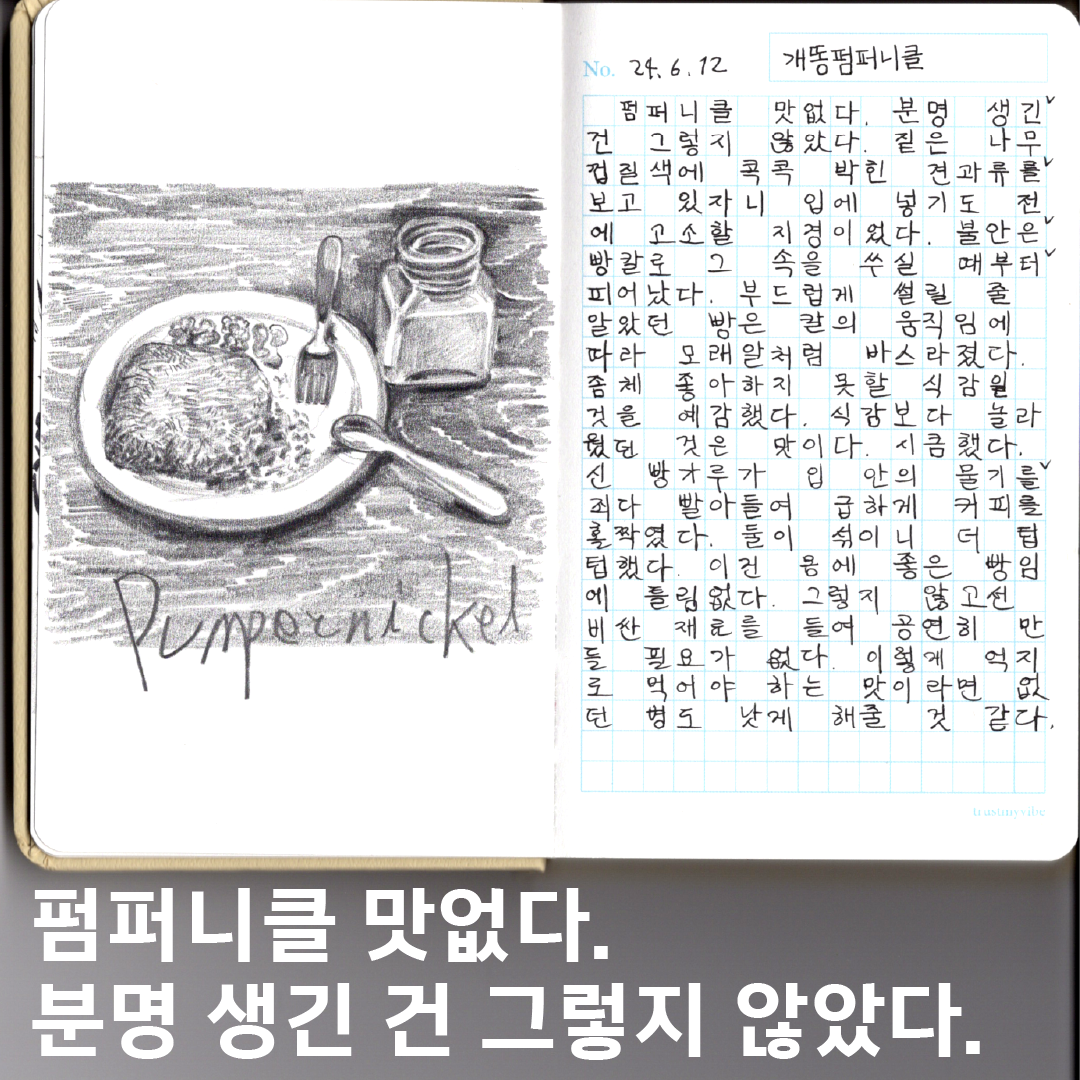 Pumpernickel
No. 24. 6. 12
개똥펌퍼니클
펌퍼니클 맛없다. 분명 생긴
건 그렇지 않았다. 짙은 나무
껍질색에 콕콕 박힌 견과류를
보고 있자니 입에 넣기도 전
에 고소할 지경이었다. 불안은
빵칼로 그 속을 쑤실 때부터
피어났다. 부드럽게 썰릴 줄
알았던 빵은 칼의 움직임에
따라 모래알처럼 바스라졌다.
좀체 좋아하지 못할 식감일
것을 예감했다. 식감보다 놀라
웠던 것은 맛이다. 시큼했다.
신 빵가루가 입 안의 물기를
죄다 빨아들여 급하게 커피를
홀짝였다. 둘이 섞이니 더 텁
텁했다. 이건 몸에 좋은 빵임
에 틀림없다. 그렇지 않고선
비싼 재료를 들여 공연히 만
들 필요가 없다. 이렇게 억지
로 먹어야 하는 맛이라면 없
던 병도 낫게 해줄 것 같다.
trustmyvibe
펌퍼니클 맛없다.
분명 생긴 건 그렇지 않았다.